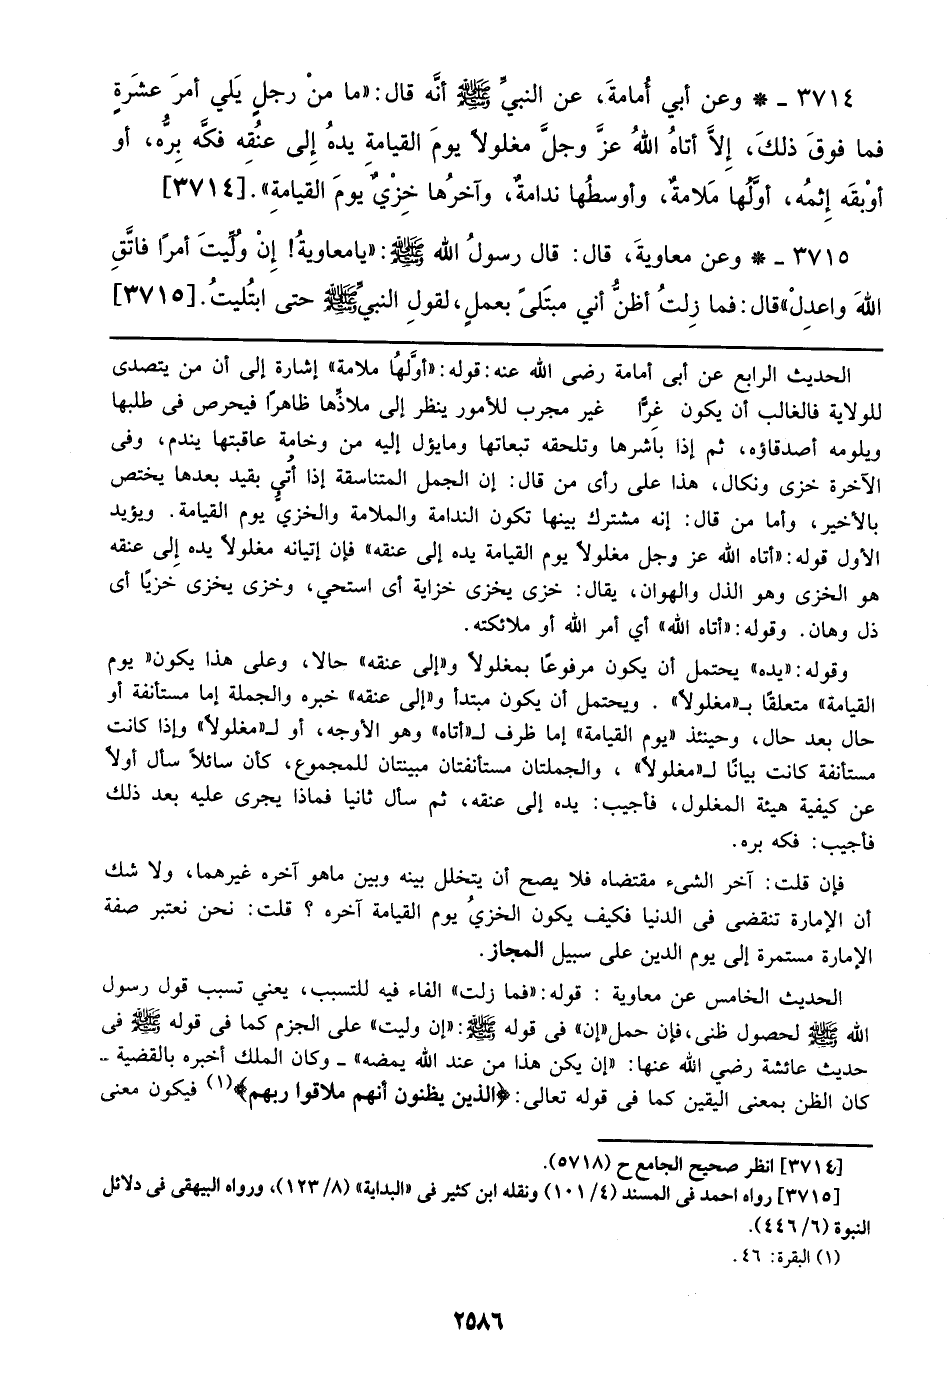 ٣٧١٤ ـ * وعن أبي أُمامةَ، عن النبيِّ ﷺ أنَّه قال: «ما منْ رجلٍ يَلي أمرَ عشَرةٍ
فما فوقَ ذلكَ، إِلاَّ أتاهُ اللهُ عزَّ وجلَّ مغلولاً يومَ القيامةِ يدهُ إِلى عنُقِه فكَّه بِرُّه، أو
أوْبقَه إِثمُه، أوَّلُها مَلامةٌ، وأوسطُها ندامةٌ، وآخرُها خِزْيٌ يومَ القيامةِ». [٣٧١٤]
٣٧١٥ ـ * وعن معاويةَ، قال: قال رسولُ الله ﷺ: «يامعاويةُ! إِنْ وُلِّيتَ أمرًا فاتَّقِ
اللهَ واعدِلْ» قال: فما زِلتُ أظنُّ أني مبتَلىً بعملٍ، لقولِ النبيِّ ﷺ حتى ابتُليتُ. [٣٧١٥]
الحديث الرابع عن أبى أمامة رضى الله عنه: قوله: «أوَّلهُا ملامة» إشارة إلى أن من يتصدى
للولاية فالغالب أن يكون غِرًّا غير مجرب للأمور ينظر إلى ملاذِّها ظاهرًا فيحرص فى طلبها
ويلومه أصدقاؤه، ثم إذا باشرها وتلحقه تبعاتها ومايؤل إليه من وخامة عاقبتها يندم، وفى
الآخرة خزى ونكال، هذا على رأى من قال: إن الجمل المتناسقة إذا أُتي بقيد بعدها يختص
بالأخير، وأما من قال: إنه مشترك بينها تكون الندامة والملامة والخزيُّ يوم القيامة. ويؤيد
الأول قوله: «أتاه الله عز وجل مغلولاً يوم القيامة يده إلى عنقه» فإن إتيانه مغلولاً يده إلى عنقه
هو الخزى وهو الذل والهوان، يقال: خزى يخزى خزاية أى استحي، وخزى يخزى خزيًا أى
ذل وهان. وقوله: «أتاه الله» أي أمر الله أو ملائكته.
وقوله: «يده» يحتمل أن يكون مرفوعًا بمغلولاً و«إلى عنقه» حالا، وعلى هذا يكون «يوم
القيامة» متعلقًا بـ«مغلولاً» . ويحتمل أن يكون مبتدأ و«إلى عنقه» خبره والجملة إما مستأنفة أو
حال بعد حال، وحينئذ «يوم القيامة» إما ظرف لـ«أتاه» وهو الأوجه، أو لـ«مغلولاً» وإذا كانت
مستأنفة كانت بيانًا لـ«مغلولاً» ، والجملتان مستأنفتان مبينتان للمجموع، كأن سائلاً سأل أولاً
عن كيفية هيئة المغلول، فأجيب: يده إلى عنقه، ثم سأل ثانيا فماذا يجرى عليه بعد ذلك
فأجيب: فكه بره.
فإن قلت: آخر الشىء مقتضاه فلا يصح أن يتخلل بينه وبين ماهو آخره غيرهما، ولا شك
أن الإمارة تنقضى فى الدنيا فكيف يكون الخزيُ يوم القيامة آخره ؟ قلت: نحن نعتبر صفة
الإمارة مستمرة إلى يوم الدين على سبيل المجاز.
الحديث الخامس عن معاوية : قوله: «فما زلت» الفاء فيه للتسبب، يعني تسبب قول رسول
الله ﷺ لحصول ظنى، فإن حمل «إن» فى قوله ﷺ: «إن وليت» على الجزم كما فى قوله ﷺ فى
حديث عائشة رضي الله عنها: «إن يكن هذا من عند الله يمضه» ـ وكان الملك أخبره بالقضية ـ
كان الظن بمعنى اليقين كما فى قوله تعالى: ﴿الذين يظنون أنهم ملاقوا ربهم﴾(١) فيكون معنى
[٣٧١٤] انظر صحيح الجامع ح (٥٧١٨).
[٣٧١٥] رواه احمد فى المسند (٤/ ١٠١) ونقله ابن كثير فى «البداية» (٨/ ١٢٣)، ورواه البيهقى فى دلائل
النبوة (٦/ ٤٤٦).
(١) البقرة: ٤٦.
٢٥٨٦